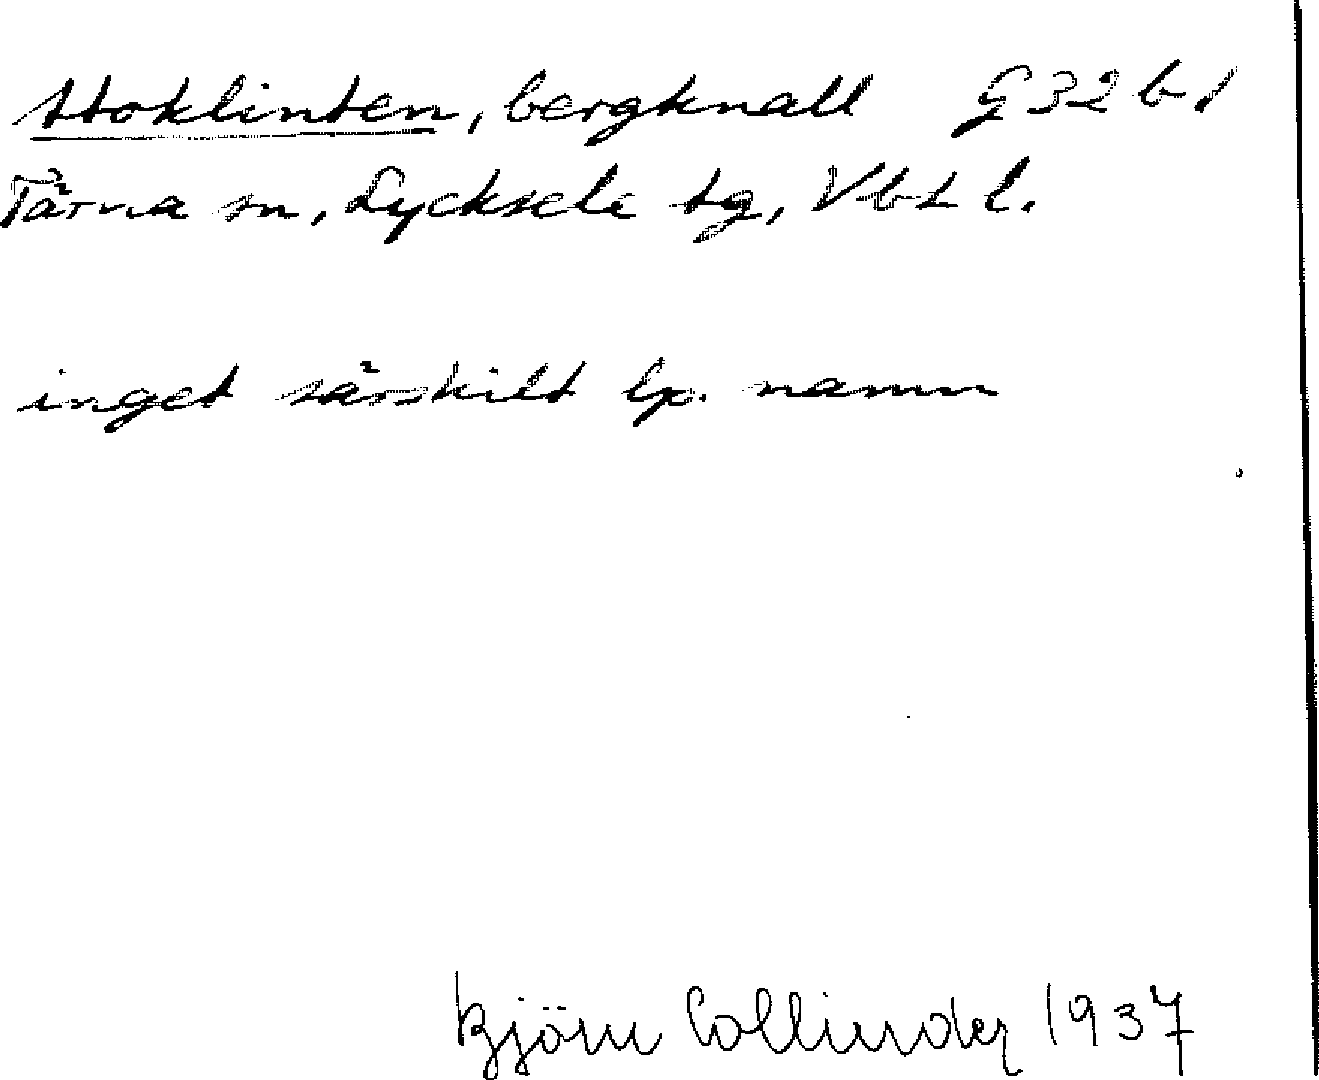 Stoklinten, bergknall G 32 b 1
Tärna sn, Lycksele tg, Vbt l.
inget särskilt lp. namn
Björn Collinder 1937